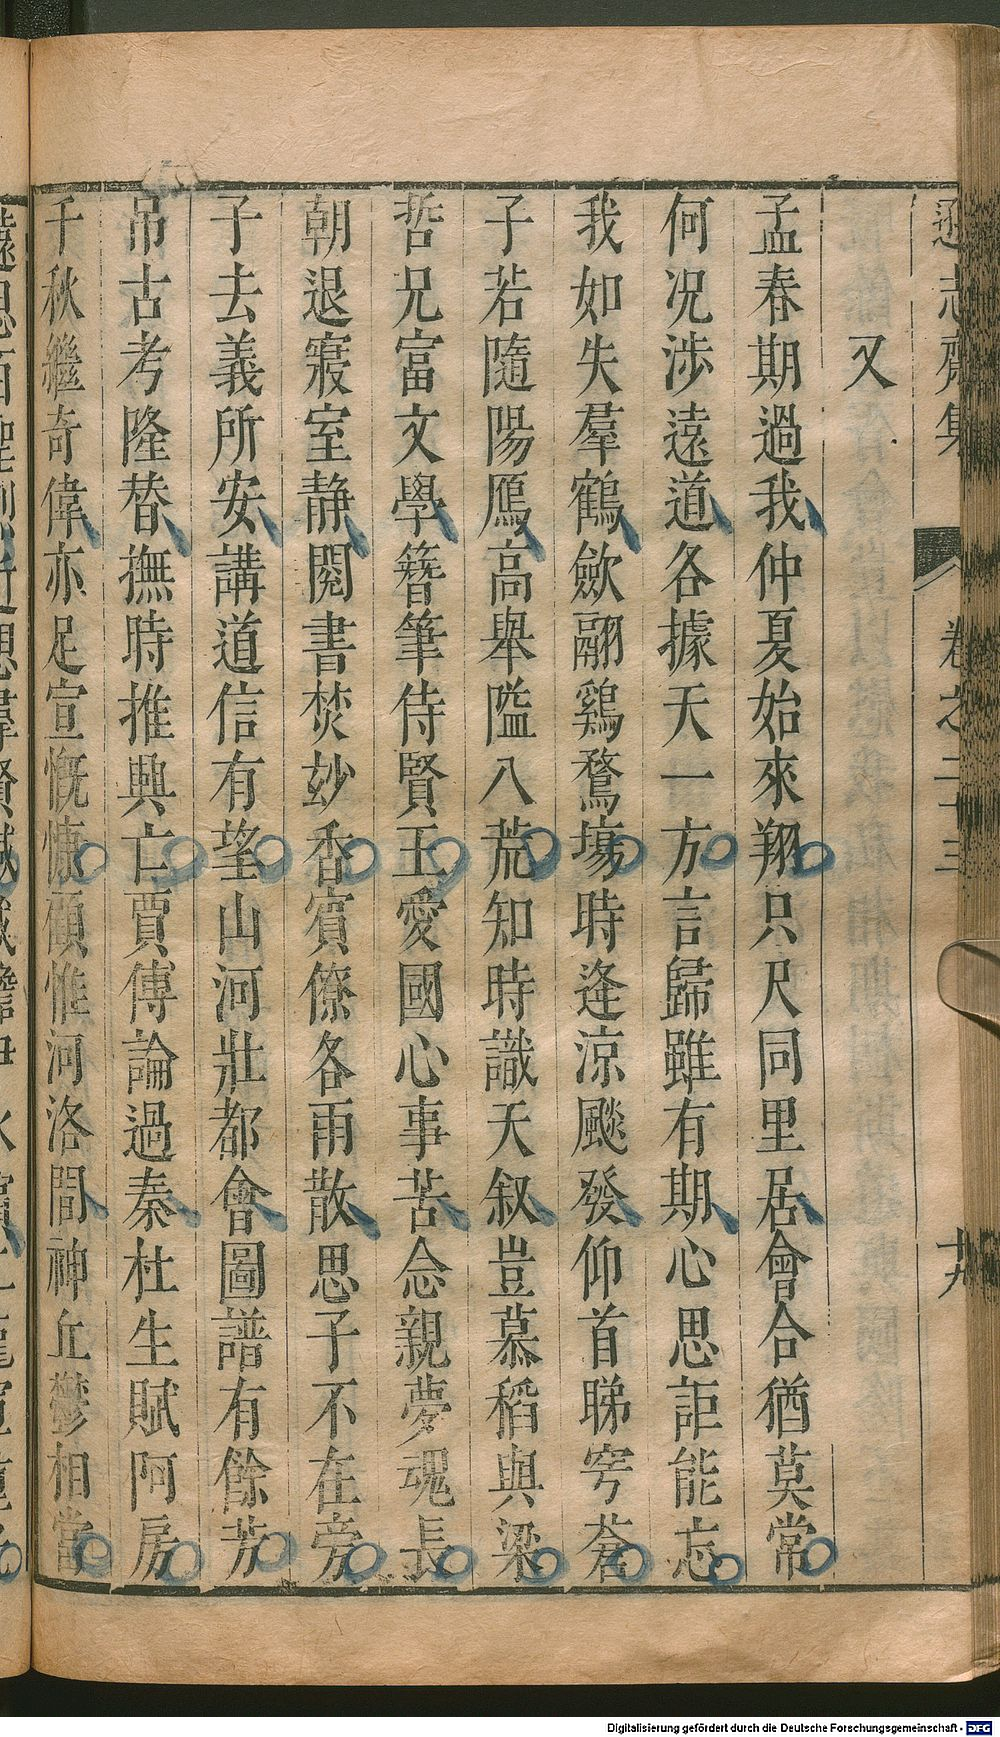 遜志齋集 卷之二十三 十九
又
孟春期過我仲夏始來翔只尺同里居會合猶莫常
何况涉遠道各據天一方言歸雖有期心思詎能忘
我如失羣鶴斂翮鷄鶩塲時逢涼飈發仰首睇穹蒼
子若隨陽鴈高舉隘八荒知時識天叙豈慕稻與梁
哲兄富文學簪筆侍賢王愛國心事苦念親夢魂長
朝退寢室静閱書焚妙香賓僚各雨散思子不在旁
子去義所安講道信有望山河壯都會圖譜有餘芳
吊古考隆替撫時推興亡賈傅論過秦杜生賦阿房
千秋繼奇偉亦足宣慨慷顧惟河洛間神丘鬱相當
Digitalisierung gefördert durch die Deutsche Forschungsgemeinschaft - DFG